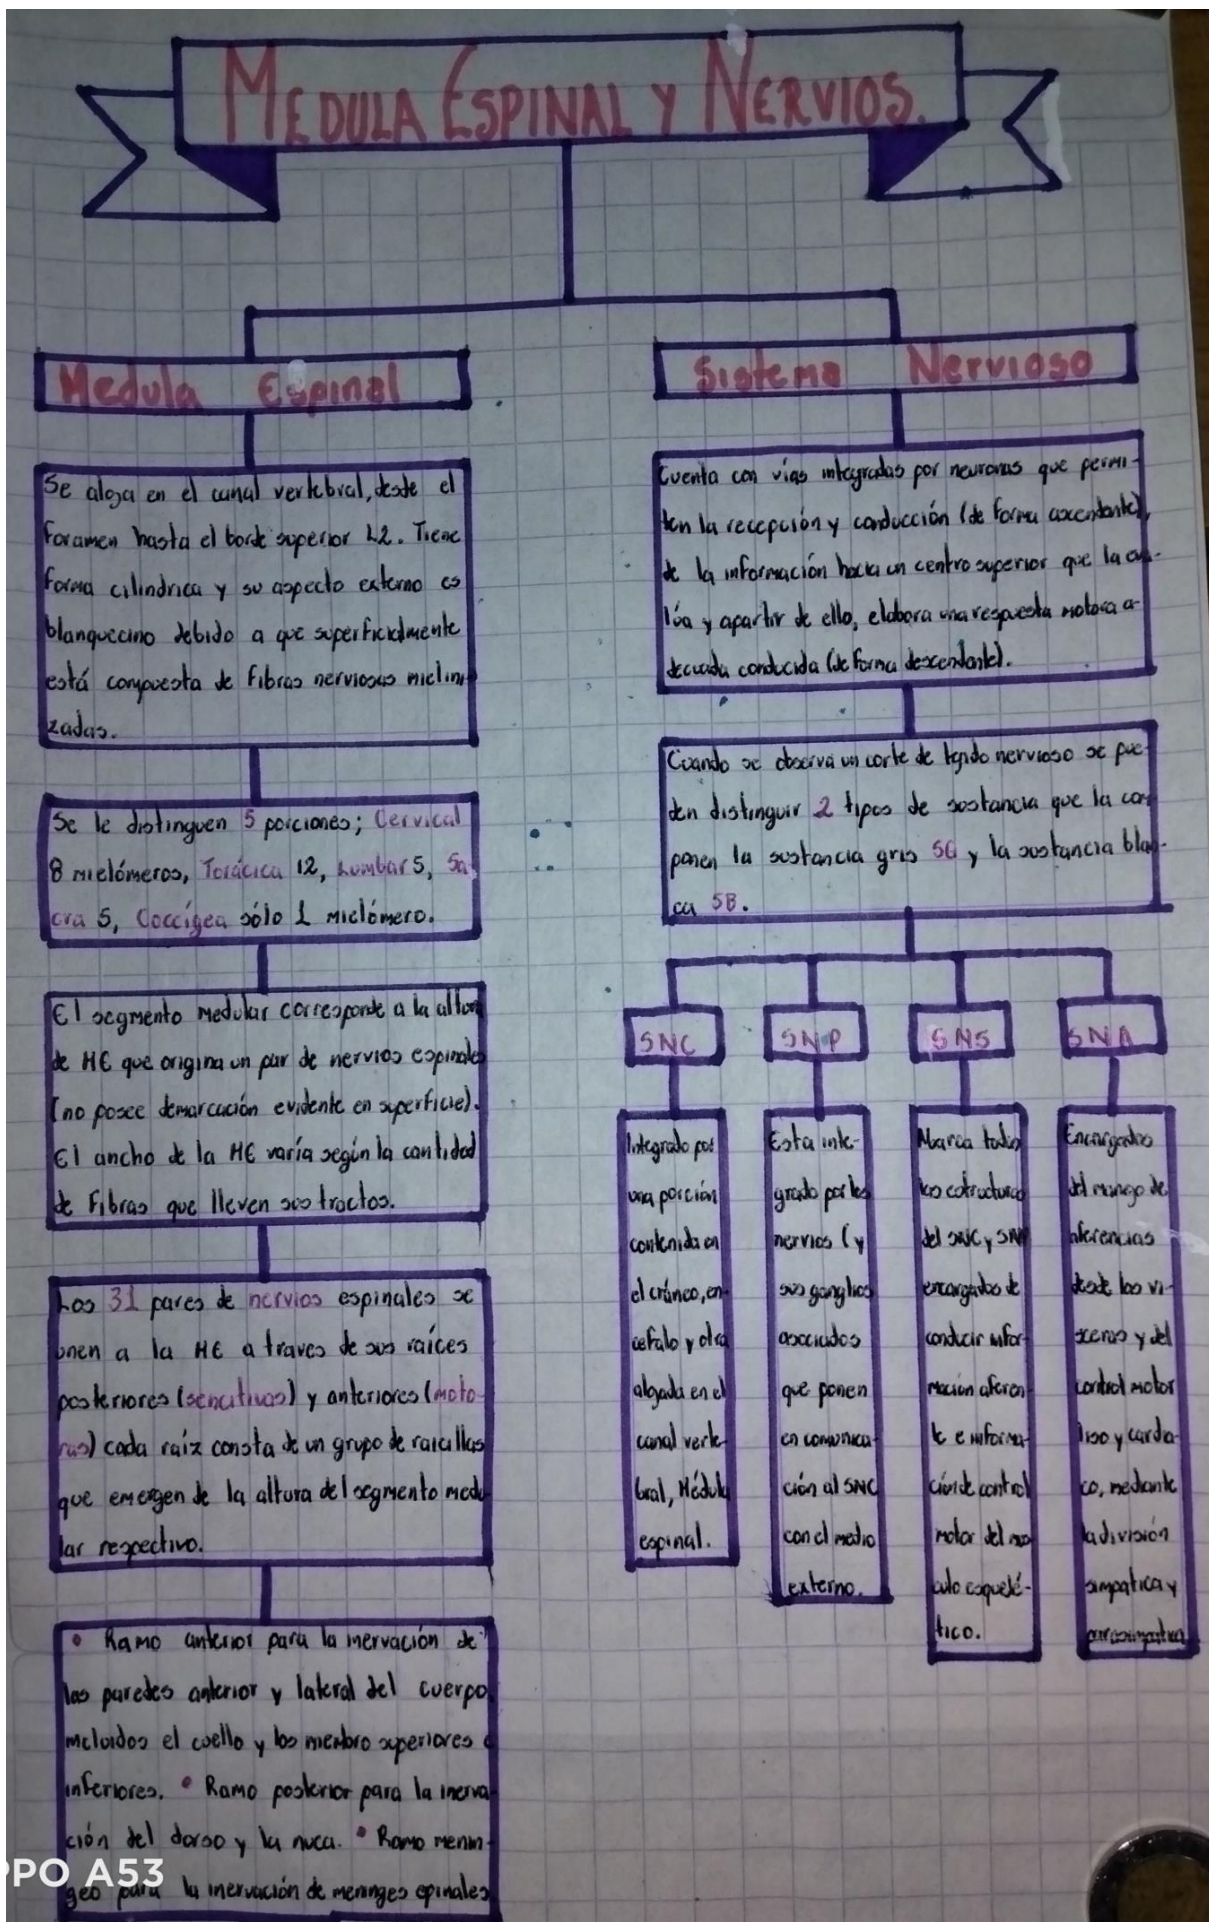 MEDULA ESPINAL Y NERVIOS.
Medula Espinal
Se aloja en el canal vertebral, desde el
Foramen hasta el borde superior L2. Tiene
forma cilindrica y su aspecto externo es
blanquecino debido a que superficialmente
está compuesta de Fibras nerviosas mielini
zadas.
Se le distinguen 5 porciones; Cervical
8 mielómeros, Torácica 12, Lumbar 5, Sa
cra 5, Coccígea sólo 1 mielómero.
El segmento medular corresponde a la altura
de ME que origina un par de nervios espinales
(no posee demarcación evidente en superficie).
El ancho de la ME varía según la cantidad
de Fibras que lleven sus tractos.
Los 31 pares de nervios espinales se
unen a la ME a traves de sus raíces
posteriores (sencitivas) y anteriores (moto-
ras) cada raíz consta de un grupo de raicillas
que emergen de la altura del segmento medu
lar respectivo.
• Ramo anterior para la inervación de
las paredes anterior y lateral del cuerpo,
incluidos el cuello y los miembro superiores e
inferiores. • Ramo posterior para la inerva
ción del dorso y la nuca. • Ramo menin-
geo para la inervación de meninges epinales
Sistema Nervioso
Cuenta con vías integradas por neuronas que permi-
ten la recepción y conducción (de forma ascendante),
de la información hacia un centro superior que la eva-
lúa y apartir de ello, elabora una respuesta motora a-
decuada conducida (de forma descendante).
Cuando se observa un corte de tejido nervioso se pue-
den distinguir 2 tipos de sustancia que la com
ponen la sustancia gris SG y la sustancia blan-
ca SB.
SNC
Integrado por
una porción
contenida en
el cráneo, en-
cefalo y otra
alojada en el
canal verte-
bral, Médula
espinal.
SNP
Esta inte-
grado por los
nervios (y
sus ganglios
asociados
que ponen
en comunica-
ción al SNC
con el medio
externo.
SNS
Abarca todas
las estructuras
del SNC y SNP
encargados de
conducir infor-
mación aferen
te e informa-
ción de control
motor del mus
culo esquelé-
tico.
SNA
Encargados
del manejo de
aferencias
desde los vi-
sceras y del
control motor
liso y cardia-
co, mediante
la división
simpatica y
parasimpatica
PPO A53